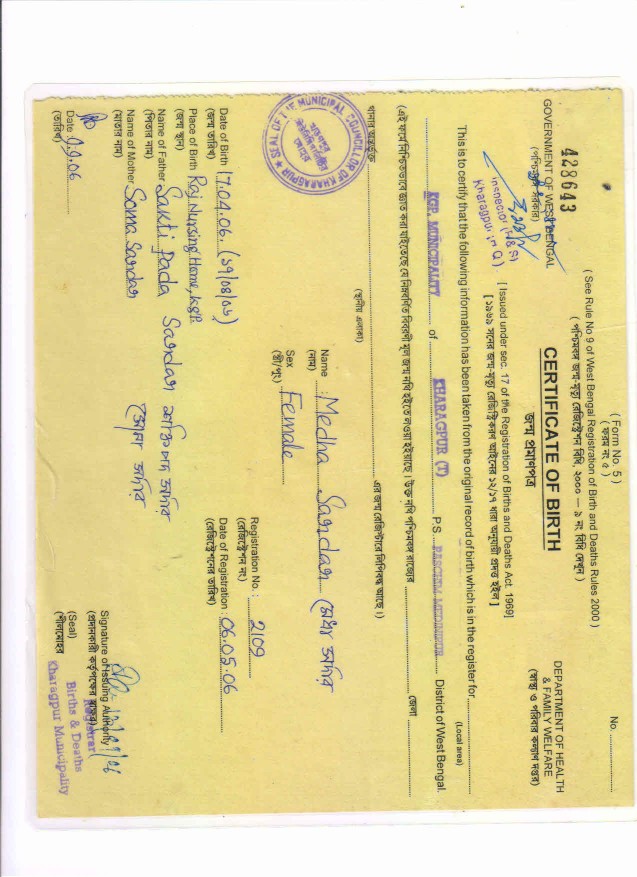 ( Form No. 5 )
( ফরম নং ৫ )
No. ....................
( See Rule No 9 of West Bengal Registration of Birth and Deaths Rules 2000 )
( পশ্চিমবঙ্গ জন্ম-মৃত্যু রেজিষ্ট্রেশন বিধি, ২০০০ — ৯ নং বিধি দেখুন )
428643
GOVERNMENT OF WEST BENGAL
(পশ্চিমবঙ্গ সরকার)
CERTIFICATE OF BIRTH
জন্ম প্রমাণপত্র
DEPARTMENT OF HEALTH
& FAMILY WELFARE
(স্বাস্থ্য ও পরিবার কল্যাণ দপ্তর)
[ Issued under sec. 17 of the Registration of Births and Deaths Act. 1969]
[ ১৯৬৯ সনের জন্ম-মৃত্যু রেজিষ্ট্রিকরণ আইনের ১২/১৭ ধারা অনুযায়ী প্রদত্ত হইল ]
This is to certify that the following information has been taken from the original record of birth which is in the register for
(Local area)
KGP. MUNICIPALITY of KHARAGPUR (T) P.S PASCHIM MIDNAPUR District of West Bengal.
(এই ফর্মে নিশ্চিতভাবে জ্ঞাত করা যাইতেছে যে নিম্নবর্ণিত বিবরণী মূল জন্ম নথি হইতে লওয়া হইয়াছে। উক্ত নথি পশ্চিমবঙ্গ রাজ্যের জেলা
থানার অন্তর্ভুক্ত এর জন্ম রেজিস্টারে লিপিবদ্ধ আছে।)
(স্থানীয় এলাকা)
SEAL OF THE MUNICIPAL COUNCILLOR OF KHARAGPUR
Name Medha Sardar মেধা সর্দার
(নাম)
Sex Female
(স্ত্রী/পুং)
Registration No. : 2109
(রেজিস্ট্রেশন নং)
Date of Birth 17.04.06. (১৭/০৪/০৬)
(জন্ম তারিখ)
Date of Registration : 06.05.06
(রেজিস্ট্রেশনের তারিখ)
Place of Birth Raj Nursing Home, KgP.
(জন্ম স্থান)
Name of Father Sakti Pada Sardar শক্তি পদ সর্দার
(পিতার নাম)
Name of Mother Soma Sardar সোমা সর্দার
(মাতার নাম)
Date
(তারিখ)
Signature of Issuing Authority
(প্রদানকারী কর্তৃপক্ষের স্বাক্ষর)
Registrar
(Seal)
Births & Deaths
(শীলমোহর)
Kharagpur Municipality